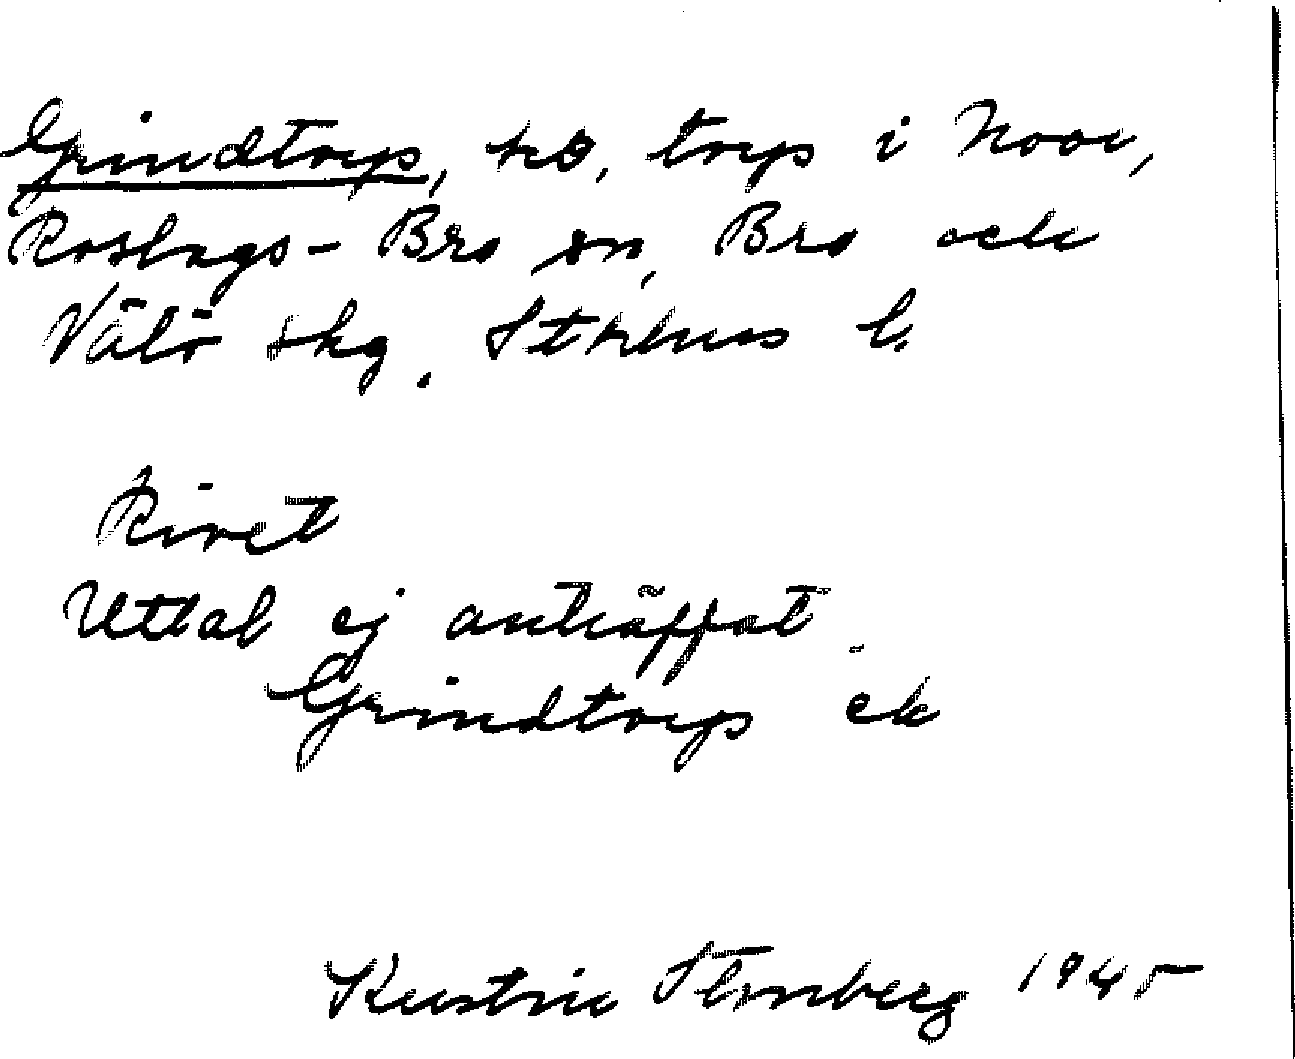 Grindtorp, ko, torp i Noor,
Roslags-Bro sn, Bro och
Vätö skg. Stkhms l.
Rivet
Uttal ej anträffat.
Grindtorp ek
Kerstin Stenberg 1945